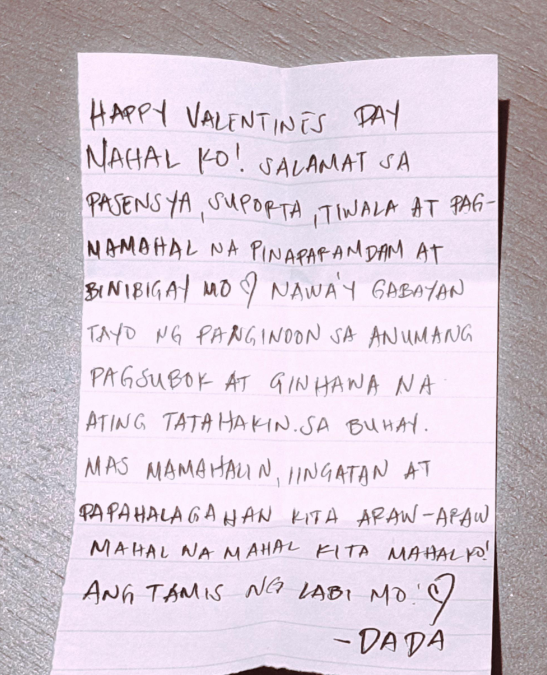 HAPPY VALENTINES DAY
MAHAL KO! SALAMAT SA
PASENSYA, SUPORTA, TIWALA AT PAG-
MAMAHAL NA PINAPARAMDAM AT
BINIBIGAY MO ♡ NAWA'Y GABAYAN
TAYO NG PANGINOON SA ANUMANG
PAGSUBOK AT GINHAWA NA
ATING TATAHAKIN.SA BUHAY.
MAS MAMAHALIN, IINGATAN AT
PAPAHALAGAHAN KITA ARAW-ARAW
MAHAL NA MAHAL KITA MAHAL KO!
ANG TAMIS NG LABI MO! ♡
-DADA